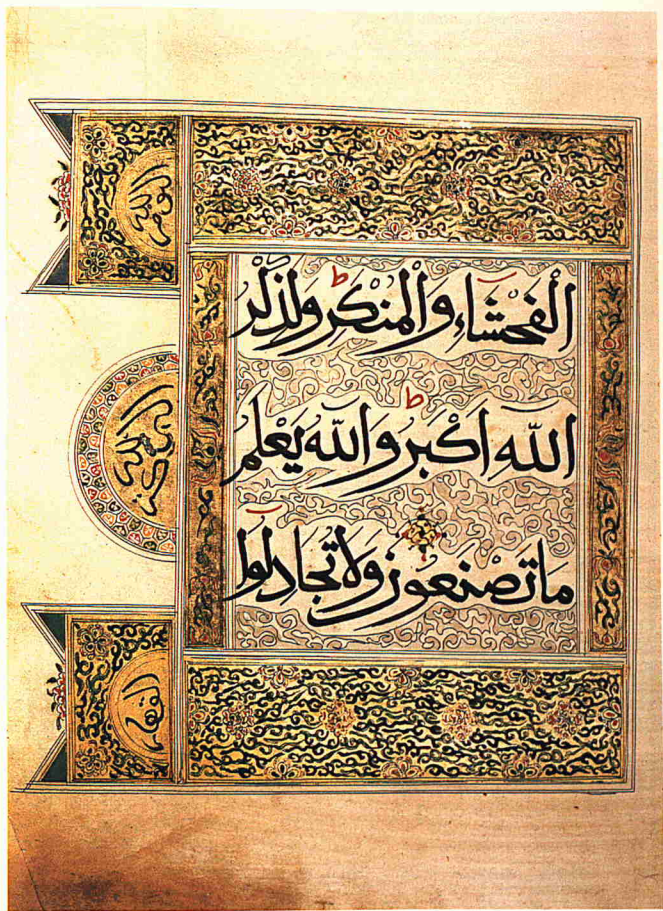 الْفَحْشَاءِ وَالْمُنْكَرِ وَلَذِكْرُ
اللّٰهِ اَكْبَرُ وَاللّٰهُ يَعْلَمُ
مَا تَصْنَعُونَ وَلَا تُجَادِلُوا
القهار